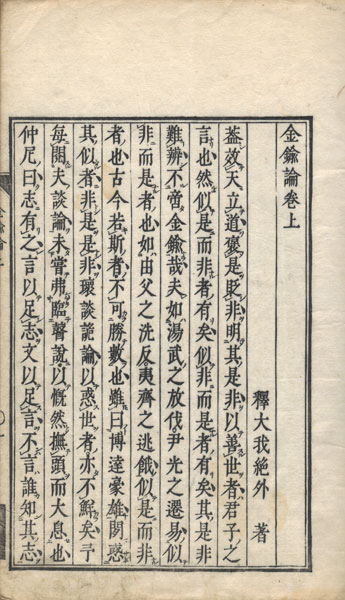 金鍮論卷上
釋大我絶外 著
蓋效天立道褒是貶非明其是非以善世者君子之
言也然似是而非者有矣似非而是者有矣其是非
難辨不啻金鍮哉夫如湯武之放伐尹光之遷易似
非而是者也如由父之洗反夷齊之逃餓似是而非
者也古今若斯者不可勝數也雖曰博達豪雄罔惑
其似者非是是非瓌談詭論以惑世者亦不鮮矣予
每閱夫談論未嘗弗臨聲說以慨然撫頭而大息也
仲尼曰志有之言以足志文以足言不言誰知其志